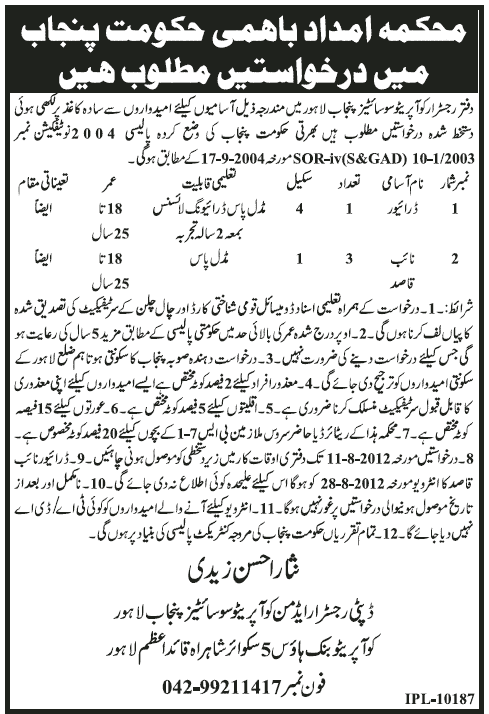 محکمہ امداد باہمی حکومت پنجاب
میں درخواستیں مطلوب ہیں
دفتر رجسٹرار کوآپریٹو سوسائٹیز پنجاب لاہور میں مندرجہ ذیل آسامیوں کیلئے امیدواروں سے سادہ کاغذ پر لکھی ہوئی
دستخط شدہ درخواستیں مطلوب ہیں بھرتی حکومت پنجاب کی وضع کردہ پالیسی 2004 نوٹیفکیشن نمبر
SOR-iv(S&GAD) 10-1/2003 مورخہ 17-9-2004 کے مطابق ہوگی۔
نمبر شمار نام آسامی تعداد سکیل تعلیمی قابلیت عمر تعیناتی مقام
1 ڈرائیور 1 4 مڈل پاس ڈرائیونگ لائسنس 18 تا ایضاً
بمعہ 2 سالہ تجربہ 25 سال
2 نائب 3 1 مڈل پاس 18 تا ایضاً
قاصد 25 سال
شرائط:۔ 1۔ درخواست کے ہمراہ تعلیمی اسناد ڈومیسائل قومی شناختی کارڈ اور چال چلن کے سرٹیفکیٹ کی تصدیق شدہ
کاپیاں لف کرنا ہوں گی۔ 2۔ اوپر درج شدہ عمر کی بالائی حد میں حکومتی پالیسی کے مطابق مزید 5 سال کی رعایت ہو
گی جس کیلئے درخواست دینے کی ضرورت نہیں۔ 3۔ درخواست دہندہ صوبہ پنجاب کا سکونتی ہو تاہم ضلع لاہور کے
سکونتی امیدواروں کو ترجیح دی جائے گی۔ 4۔ معذور افراد کیلئے 2 فیصد کوٹہ مختص ہے ایسے امیدواروں کیلئے اپنی معذوری
کا قابل قبول سرٹیفکیٹ منسلک کرنا ضروری ہے۔ 5۔ اقلیتوں کیلئے 5 فیصد کوٹہ مختص ہے۔ 6۔ عورتوں کیلئے 15 فیصد
کوٹہ مختص ہے۔ 7۔ محکمہ ہذا کے ریٹائرڈ یا حاضر سروس ملازمین بی ایس 7-1 کے بچوں کیلئے 20 فیصد کوٹہ مخصوص ہے۔
8۔ درخواستیں مورخہ 11-8-2012 تک دفتری اوقات کار میں زیر دستخطی کو موصول ہونی چاہئیں۔ 9۔ ڈرائیور نائب
قاصد کا انٹرویو مورخہ 28-8-2012 کو ہوگا اس کیلئے علیحدہ کوئی اطلاع نہ دی جائے گی۔ 10۔ نامکمل اور بعد از
تاریخ موصول ہونیوالی درخواستیں پر غور نہیں ہوگا۔ 11۔ انٹرویو کیلئے آنے والے امیدواروں کو کوئی ٹی اے/ڈی اے
نہیں دیا جائے گا۔ 12۔ تمام تقرریاں حکومت پنجاب کی مروجہ کنٹریکٹ پالیسی کی بنیاد پر ہوں گی۔
نثار احسن زیدی
ڈپٹی رجسٹرار ایڈمن کوآپریٹو سوسائٹیز پنجاب لاہور
کوآپریٹو بنک ہاؤس 5 سکوائر شاہراہ قائد اعظم لاہور
فون نمبر 042-99211417
IPL-10187